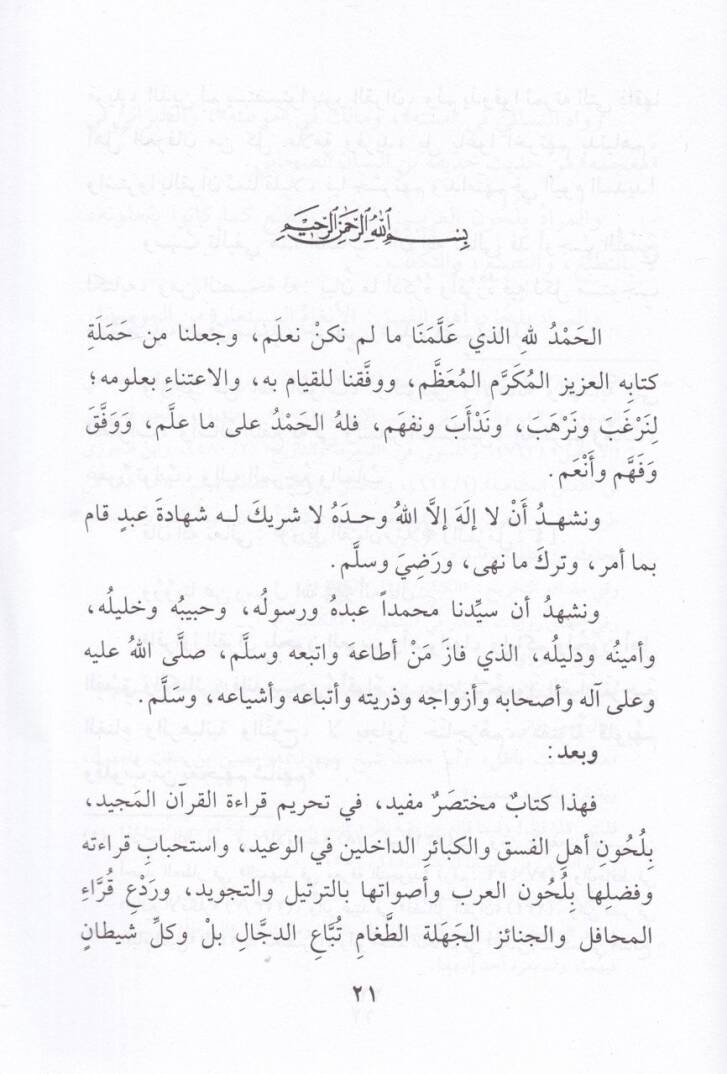 بسم الله الرحمن الرحيم
الحَمْدُ للهِ الذي عَلَّمَنَا ما لم نكنْ نعلَم، وجعلنا من حَمَلَةِ
كتابِه العزيز المُكَرَّم المُعَظَّم، ووفَّقنا للقيام به، والاعتناءِ بعلومه؛
لِنَرْغَبَ ونَرْهَبَ، ونَدْأَبَ ونفهَم، فلهُ الحَمْدُ على ما علَّم، وَوَفَّقَ
وَفَهَّم وأَنْعَم.
ونشهـدُ أَنْ لا إلَهَ إلاَّ اللهُ وحـدَهُ لا شريكَ لـه شهادةَ عبدٍ قام
بما أمر، وتركَ ما نهى، ورَضيَ وسلَّم.
ونشهدُ أن سيِّدنا محمداً عبدهُ ورسولُه، وحبيبُه وخليلُه،
وأمينُه ودليلُه، الذي فازَ مَنْ أطاعه واتبعه وسلَّم، صلَّى اللهُ عليه
وعلى آله وأصحابه وأزواجه وذريته وأتباعه وأشياعه، وسَلَّم.
وبعد:
فهذا كتابٌ مختصَرٌ مفيد، في تحريم قراءة القرآن المَجيد،
بِلُحُونِ أهلِ الفسق والكبائرِ الداخلين في الوعيد، واستحبابِ قراءته
وفضلِها بِلُحُون العرب وأصواتها بالترتيل والتجويد، ورَدْعِ قُرَّاءِ
المحافل والجنائز الجَهَلة الطَّغامِ تُبَّاعِ الدجَّالِ بلْ وكلِّ شيطانٍ
٢١